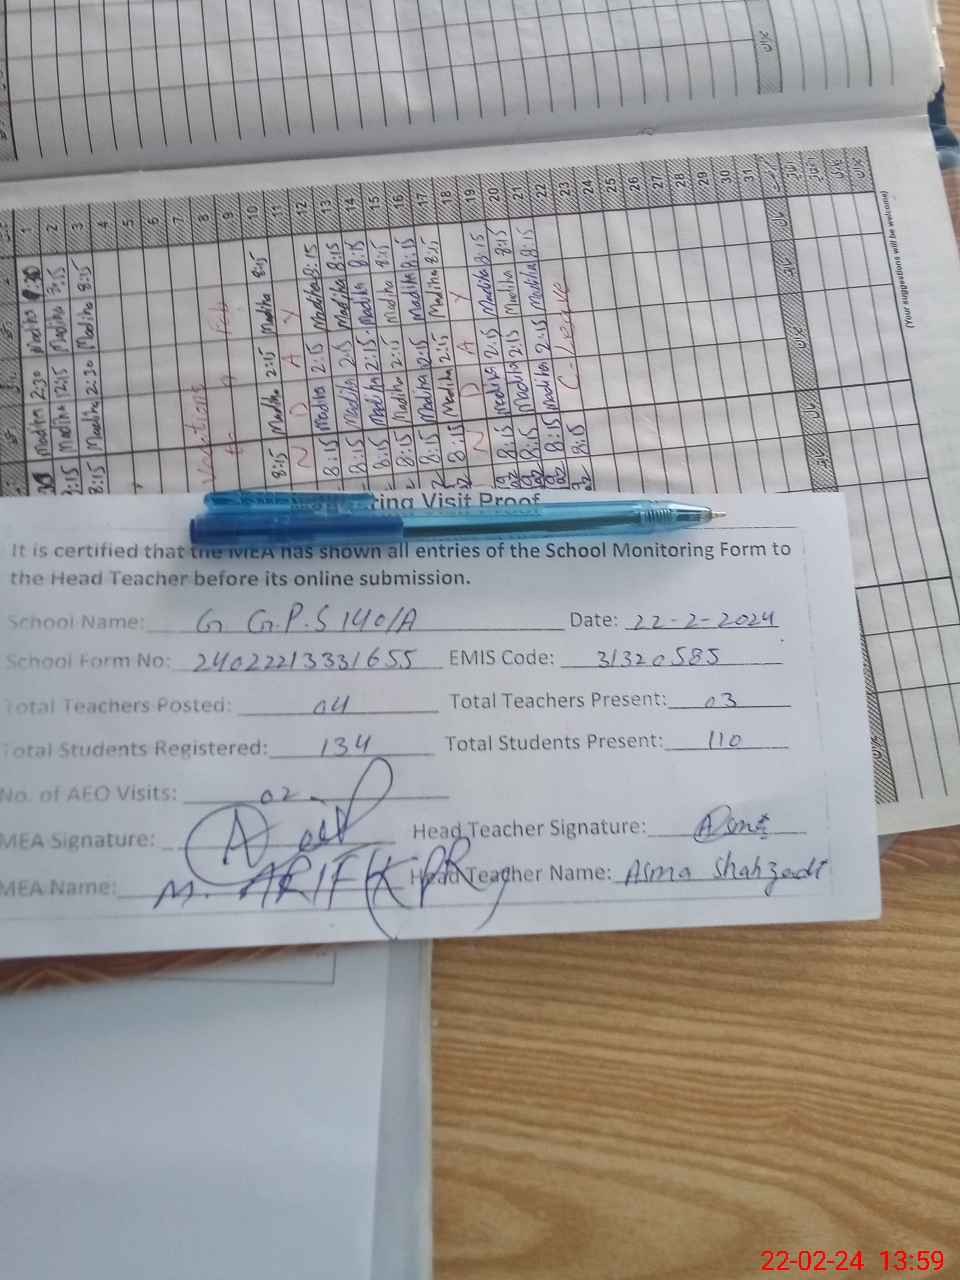 1 2 3 4 5 6 7 8 9 10 11 12 13 14 15 16 17 18 19 20 21 22 23 24 25 26 27 28 29 30 31
Madiha 2:30
Madiha 12:15 Madiha 8:15
8:15 Madiha 2:30 Madiha 8:15
Vacations
Feb
8:15 Madiha 2:15 Madiha 8:15
N D A Y
8:15 Madiha 2:15 Madiha 8:15
8:15 Madiha 2:15 Madiha 8:15
8:15 Madiha 2:15 Madiha 8:15
8:15 Madiha 2:15 Madiha 8:15
8:15 Madiha 12:15 Madiha 8:15
8:15 Madiha 2:15 Madiha 8:15
N D A Y
8:15 Madiha 2:15 Madiha 8:15
8:15 Madiha 2:15 Madiha 8:15
8:15 Madiha 2:15 Madiha 8:15
8:15 C-Leave
(Your suggestions will be welcome)
ring Visit Proof
It is certified that the MEA has shown all entries of the School Monitoring Form to
the Head Teacher before its online submission.
School Name: G G.P.S 140/A Date: 22-2-2024
School Form No: 24022213331655 EMIS Code: 31320585
Total Teachers Posted: 04 Total Teachers Present: 03
Total Students Registered: 134 Total Students Present: 110
No. of AEO Visits: 02
MEA Signature: Head Teacher Signature: Asma
MEA Name: M. ARIF (KPR) Head Teacher Name: Asma Shahzadi
22-02-24 13:59